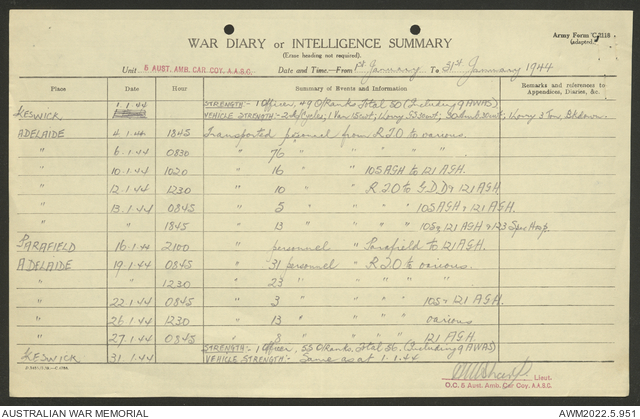 Army Form C.2118
(adapted)
WAR DIARY or INTELLIGENCE SUMMARY
(Erase heading not required).
Unit 6 AUST. AMB. CAR. COY. A.A.S.C. Date and Time.—From 1st January To 31st January 1944
Place Date Hour Summary of Events and Information Remarks and references to Appendices, Diaries, &c.
KESWICK 1.1.44 STRENGTH:- 1 Officer, 49 O/Ranks Total 50 (Including 9 AWAS)
VEHICLE STRENGTH:- 2 M/Cycles; 1 Van 15cwt; 1 Lorry 3 Ton, Bkdown.
ADELAIDE 4.1.44 1845 Transported personnel from R.T.O to various.
" 6.1.44 0830 " 76 " " "
" 10.1.44 1020 " 16 " " 105 AGH to 121 AGH
" 12.1.44 1230 " 10 " " R.T.O to G.D.D & 121 AGH
" 13.1.44 0845 " 5 " " 105 AGH & 121 AGH.
" " 1845 " 13 " " 105, 121 AGH & 123 Spec Hosp
PARAFIELD 16.1.44 2100 " personnel " Parafield to 121 AGH.
ADELAIDE 19.1.44 0845 " 31 personnel " R.T.O to various.
" " 1230 " 23 " " " "
" 22.1.44 0845 " 3 " " " 105 & 121 AGH.
" 26.1.44 1230 " 13 " " " various
" 27.1.44 0845 " 8 " " " 121 AGH
STRENGTH:- 1 Officer, 55 O/Ranks, Total 56. (Including 9 AWAS)
KESWICK 31.1.44 VEHICLE STRENGTH:- Same as at 1.1.44
Lieut.
O.C. 6 Aust. Amb. Car Coy. A.A.S.C.
AUSTRALIAN WAR MEMORIAL AWM2022.5.951